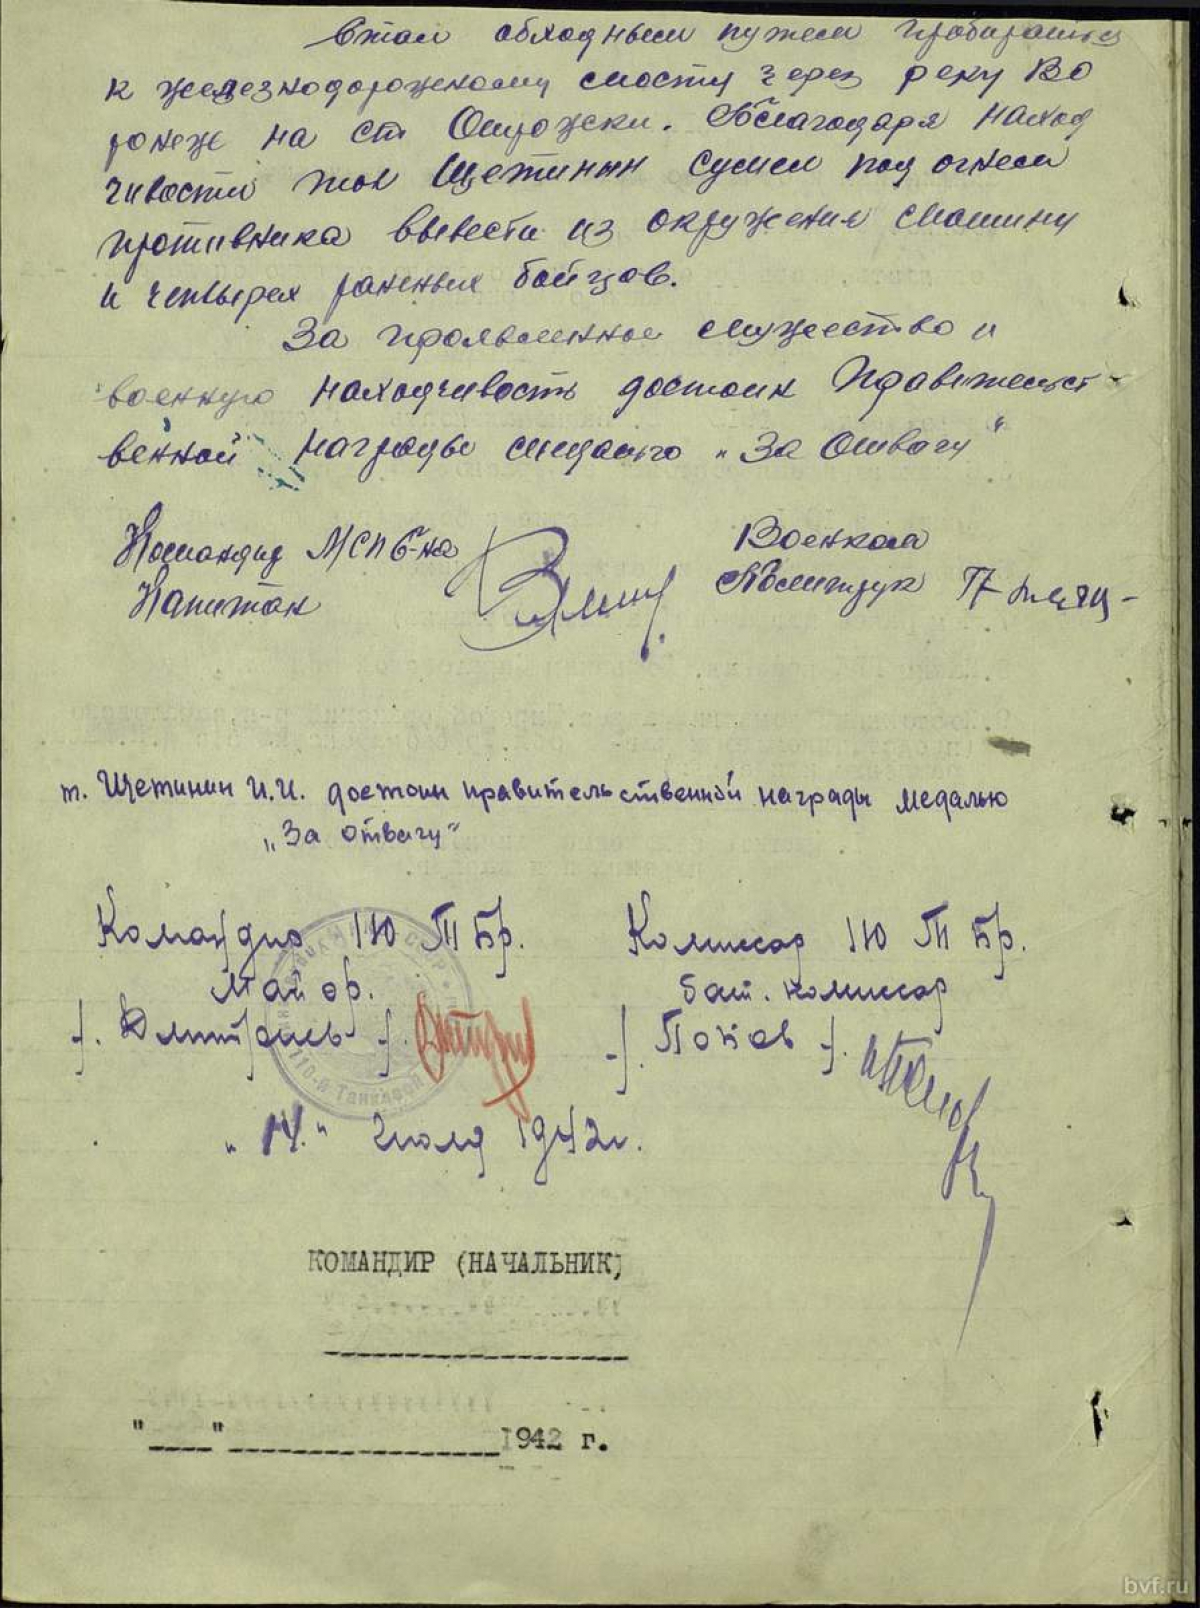 стал обходным путем пробираться
к железнодорожному мосту через реку Во
ронеж на ст Отрожски. Благодаря наход
чивости тов Щетинин сумел под огнем
противника вывести из окружения машину
и четырех раненых бойцов.
За проявленное мужество и
военную находчивость достоин Правительст-
венной награды медалью „За Отвагу"
Командир МСПБ-на
Военком
Капитан
Политрук
т. Щетинин И.И. достоин правительственной награды медалью
„За отвагу"
Командир 110 ТБр.
Комиссар 110 ТБр.
Майор.
бат. комиссар
/. Дмитриев /.
/. Попов /.
110-й Танковой
„14." Июля 1942г.
КОМАНДИР (НАЧАЛЬНИК)
"____"________________1942 г.
bvf.ru